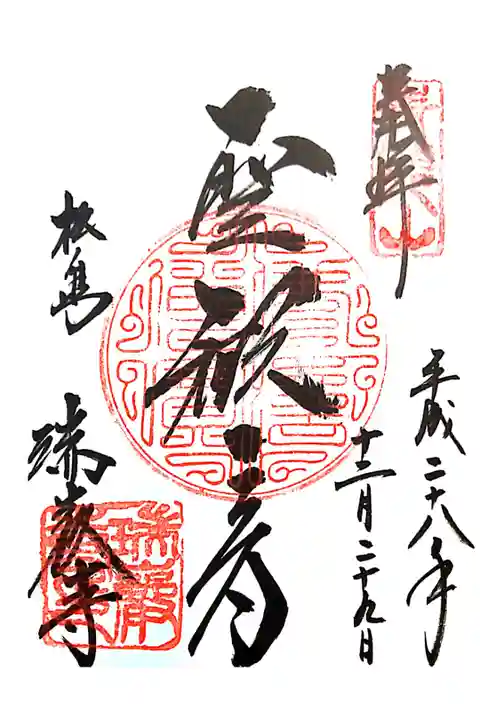 奉拝
平成二十八年
十二月二十九日
聖観音
松島
瑞巌寺